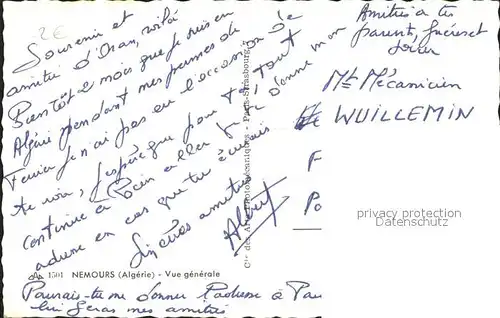 2€
Souvenir et
amitié d'Oran, voilà
Bientôt 2 mois que je suis en
Algérie pendant mes permes de
je n'ai pas eu l'occasion de
te voir, j'espère que pour toi tout
continue a bien aller je te donne mon
adresse en cas que tu
Sincères amitiés
Albert
Amitiés a tes
parents, frères et
soeur
Mt Mécanicien
WUILLEMIN
F
Po
privacy protection
Datenschutz
Cie des Arts Photomécaniques - Paris-Strasbourg
1501 NEMOURS (Algérie) - Vue générale
Pourais-tu me donner l'adresse à
lui feras mes amitiés